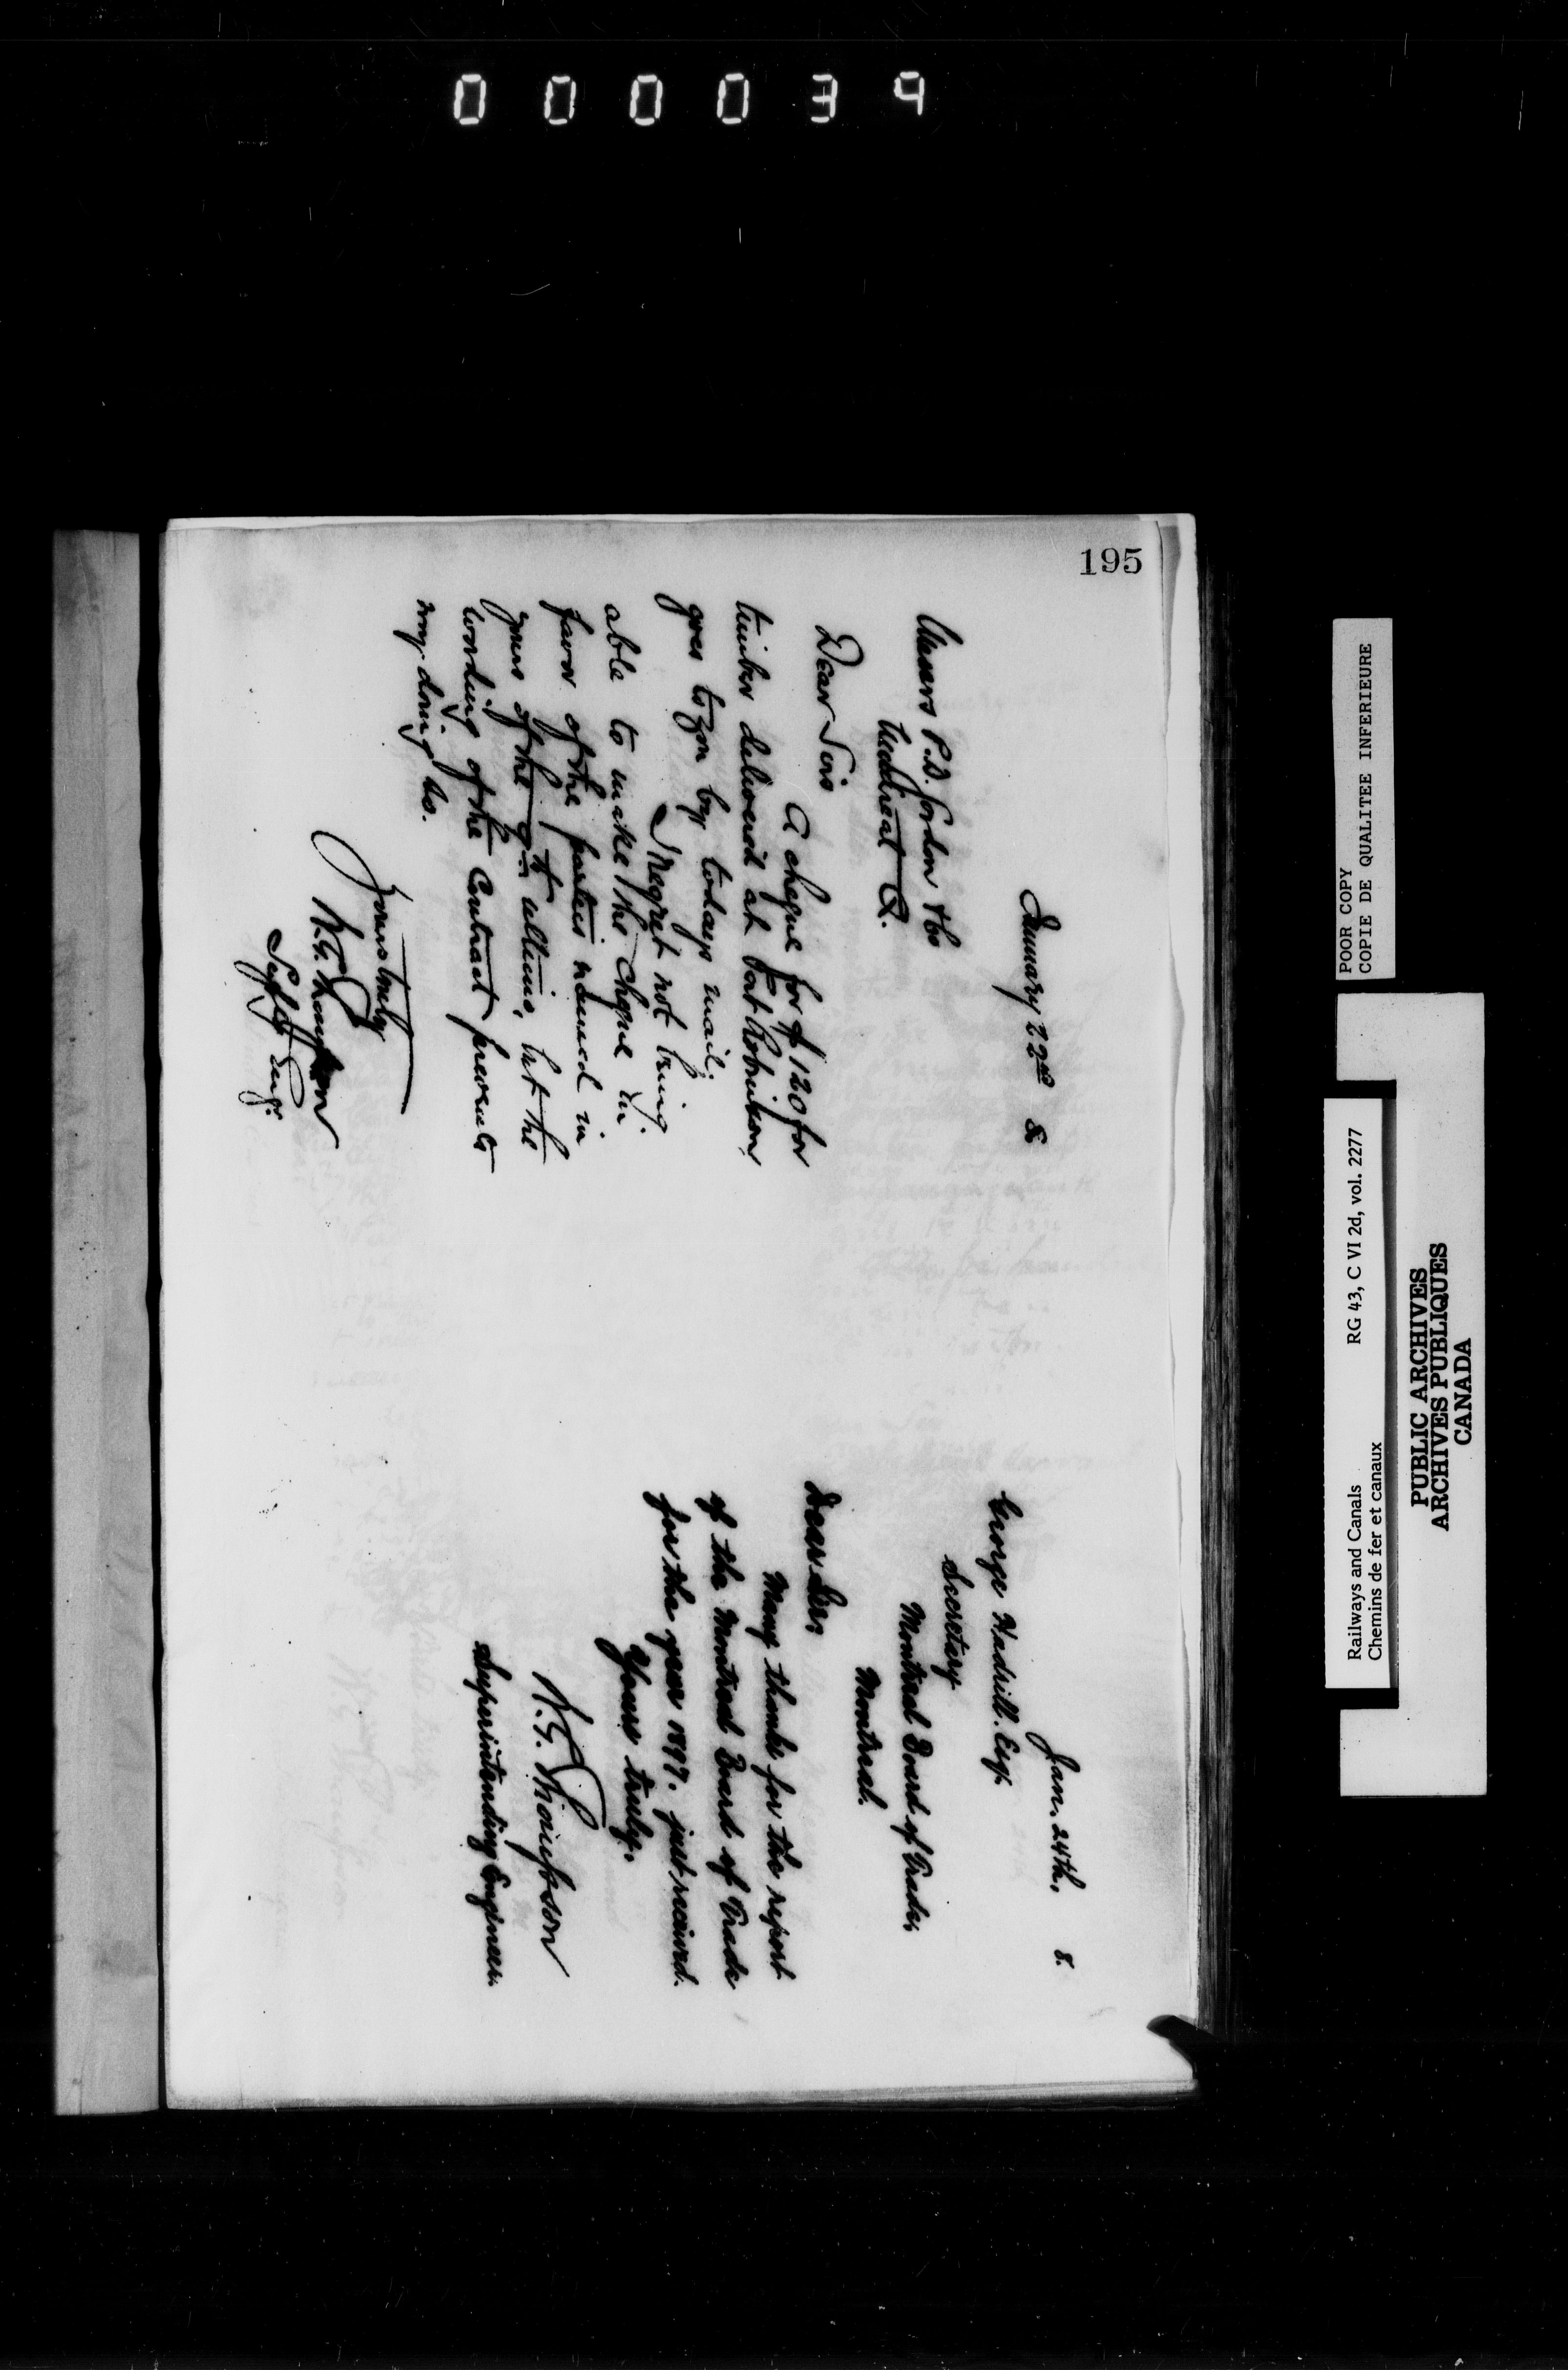 000039
195
January 22nd 8
Messrs P.D. Gordon & Co
Montreal Q.
Dear Sirs
A cheque for $120 for
timber delivered at Port Robinson
goes to you by todays mail;
I regret not being
able to make the cheque in
favor of the parties named in
yours of the ultimo, but the
wording of the Contract prevents
my doing so.
Yours truly
W.G. Thompson
Supt'g Eng'r.
Jan. 24th. 8.
George Hadrill. Esq.
Secretary
Montreal Board of Trade,
Montreal.
Dear Sir,
Many thanks for the report
of the Montreal Board of Trade
for the year 1897. just received.
Yours truly.
W.G. Thompson
Superintending Engineer.
POOR COPY
COPIE DE QUALITEE INFERIEURE
Railways and Canals RG 43, C VI 2d, vol. 2277
Chemins de fer et canaux
PUBLIC ARCHIVES
ARCHIVES PUBLIQUES
CANADA